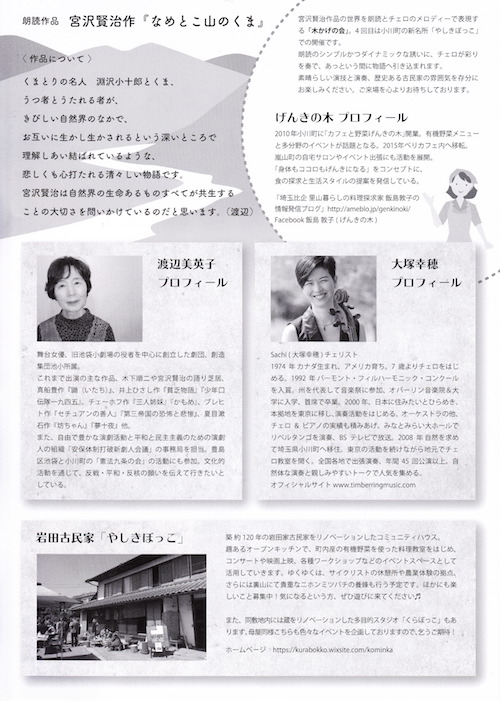 朗読作品 宮沢賢治作『なめとこ山のくま』
〈 作品について 〉
くまとりの名人 淵沢小十郎とくま、
うつ者とうたれる者が、
きびしい自然界のなかで、
お互いに生かし生かされるという深いところで
理解しあい結ばれているような、
悲しくも心打たれる清々しい物語です。
宮沢賢治は自然界の生命あるものすべてが共生する
ことの大切さを問いかけているのだと思います。（渡辺）
宮沢賢治作品の世界を朗読とチェロのメロディーで表現す
る「木かげの会」。4 回目は小川町の新名所「やしきぼっこ」
での開催です。
朗読のシンプルかつダイナミックな誘いに、チェロが彩り
を奏で、あっという間に物語へ引き込まれます。
素晴らしい演技と演奏、歴史ある古民家の雰囲気を存分に
お楽しみください。ご来場を心よりお待ちしております。
げんきの木 プロフィール
2010年小川町に「カフェと野菜げんきの木」開業。有機野菜メニュー
と多分野のイベントが話題となる。2015年ベリカフェ内へ移転。
嵐山町の自宅サロンやイベント出張にも活動を展開。
「身体もココロもげんきになる」をコンセプトに、
食の探求と生活スタイルの提案を発信している。
「埼玉比企 里山暮らしの料理探求家 飯島敦子の
情報発信ブログ」http://ameblo.jp/genkinoki/
Facebook 飯島 敦子 ( げんきの木 )
渡辺美英子
プロフィール
舞台女優。旧池袋小劇場の役者を中心に創立した劇団、創造
集団池小所属。
これまで出演の主な作品、木下順二や宮沢賢治の語り芝居、
真船豊作『鼬（いたち）』、井上ひさし作『貧乏物語』『少年口
伝隊一九四五』、チェーホフ作『三人姉妹』『かもめ』、ブレヒ
ト作『セチュアンの善人』『第三帝国の恐怖と悲惨』、夏目漱
石作『坊ちゃん』『夢十夜』他。
また、自由で豊かな演劇活動と平和と民主主義のための演劇
人の組織「安保体制打破新劇人会議」の事務局を担当。豊島
区池袋と小川町の「憲法九条の会」の活動にも参加。文化的
活動を通じて、反戦・平和・反核の願いを伝えて行きたいと
している。
大塚幸穂
プロフィール
Sachi ( 大塚幸穂 ) チェリスト
1974 年カナダ生まれ、アメリカ育ち。7 歳よりチェロをはじ
める。1992 年バーモント・フィルハーモニック・コンクール
を入賞。州を代表して音楽祭に参加、オバーリン音楽院＆大
学に入学、首席で卒業。2000 年、日本に住みたいとひらめき、
本拠地を東京に移し、演奏活動をはじめる。オーケストラの他、
チェロ ＆ ピアノの実績も積みあげ、みなとみらい大ホールで
リベルタンゴを演奏、BS テレビで放送。2008 年自然を求め
て埼玉県小川町へ移住。東京の活動を続けながら地元でチェ
ロ教室を開く。全国各地で出張演奏、年間 45 回公演以上、自
然体な演奏と親しみやすいトークで人気を集める。
オフィシャルサイト www.timberringmusic.com
岩田古民家「やしきぼっこ」
築約 120 年の岩田家古民家をリノベーションしたコミュニティハウス。
趣あるオープンキッチンで、町内産の有機野菜を使った料理教室をはじめ、
コンサートや映画上映、各種ワークショップなどのイベントスペースとして
活用していきます。ゆくゆくは、サイクリストの休憩所や農業体験の拠点、
さらには裏山にて貴重なニホンミツバチの養蜂も行う予定です。ほかにも楽
しいこと募集中！気になるという方、ぜひ遊びに来てください♬
また、同敷地内には蔵をリノベーションした多目的スタジオ「くらぼっこ」もあ
ります。母屋同様こちらも色々なイベントを企画しておりますので、乞うご期待！
ホームページ：https://kurabokko.wixsite.com/kominka